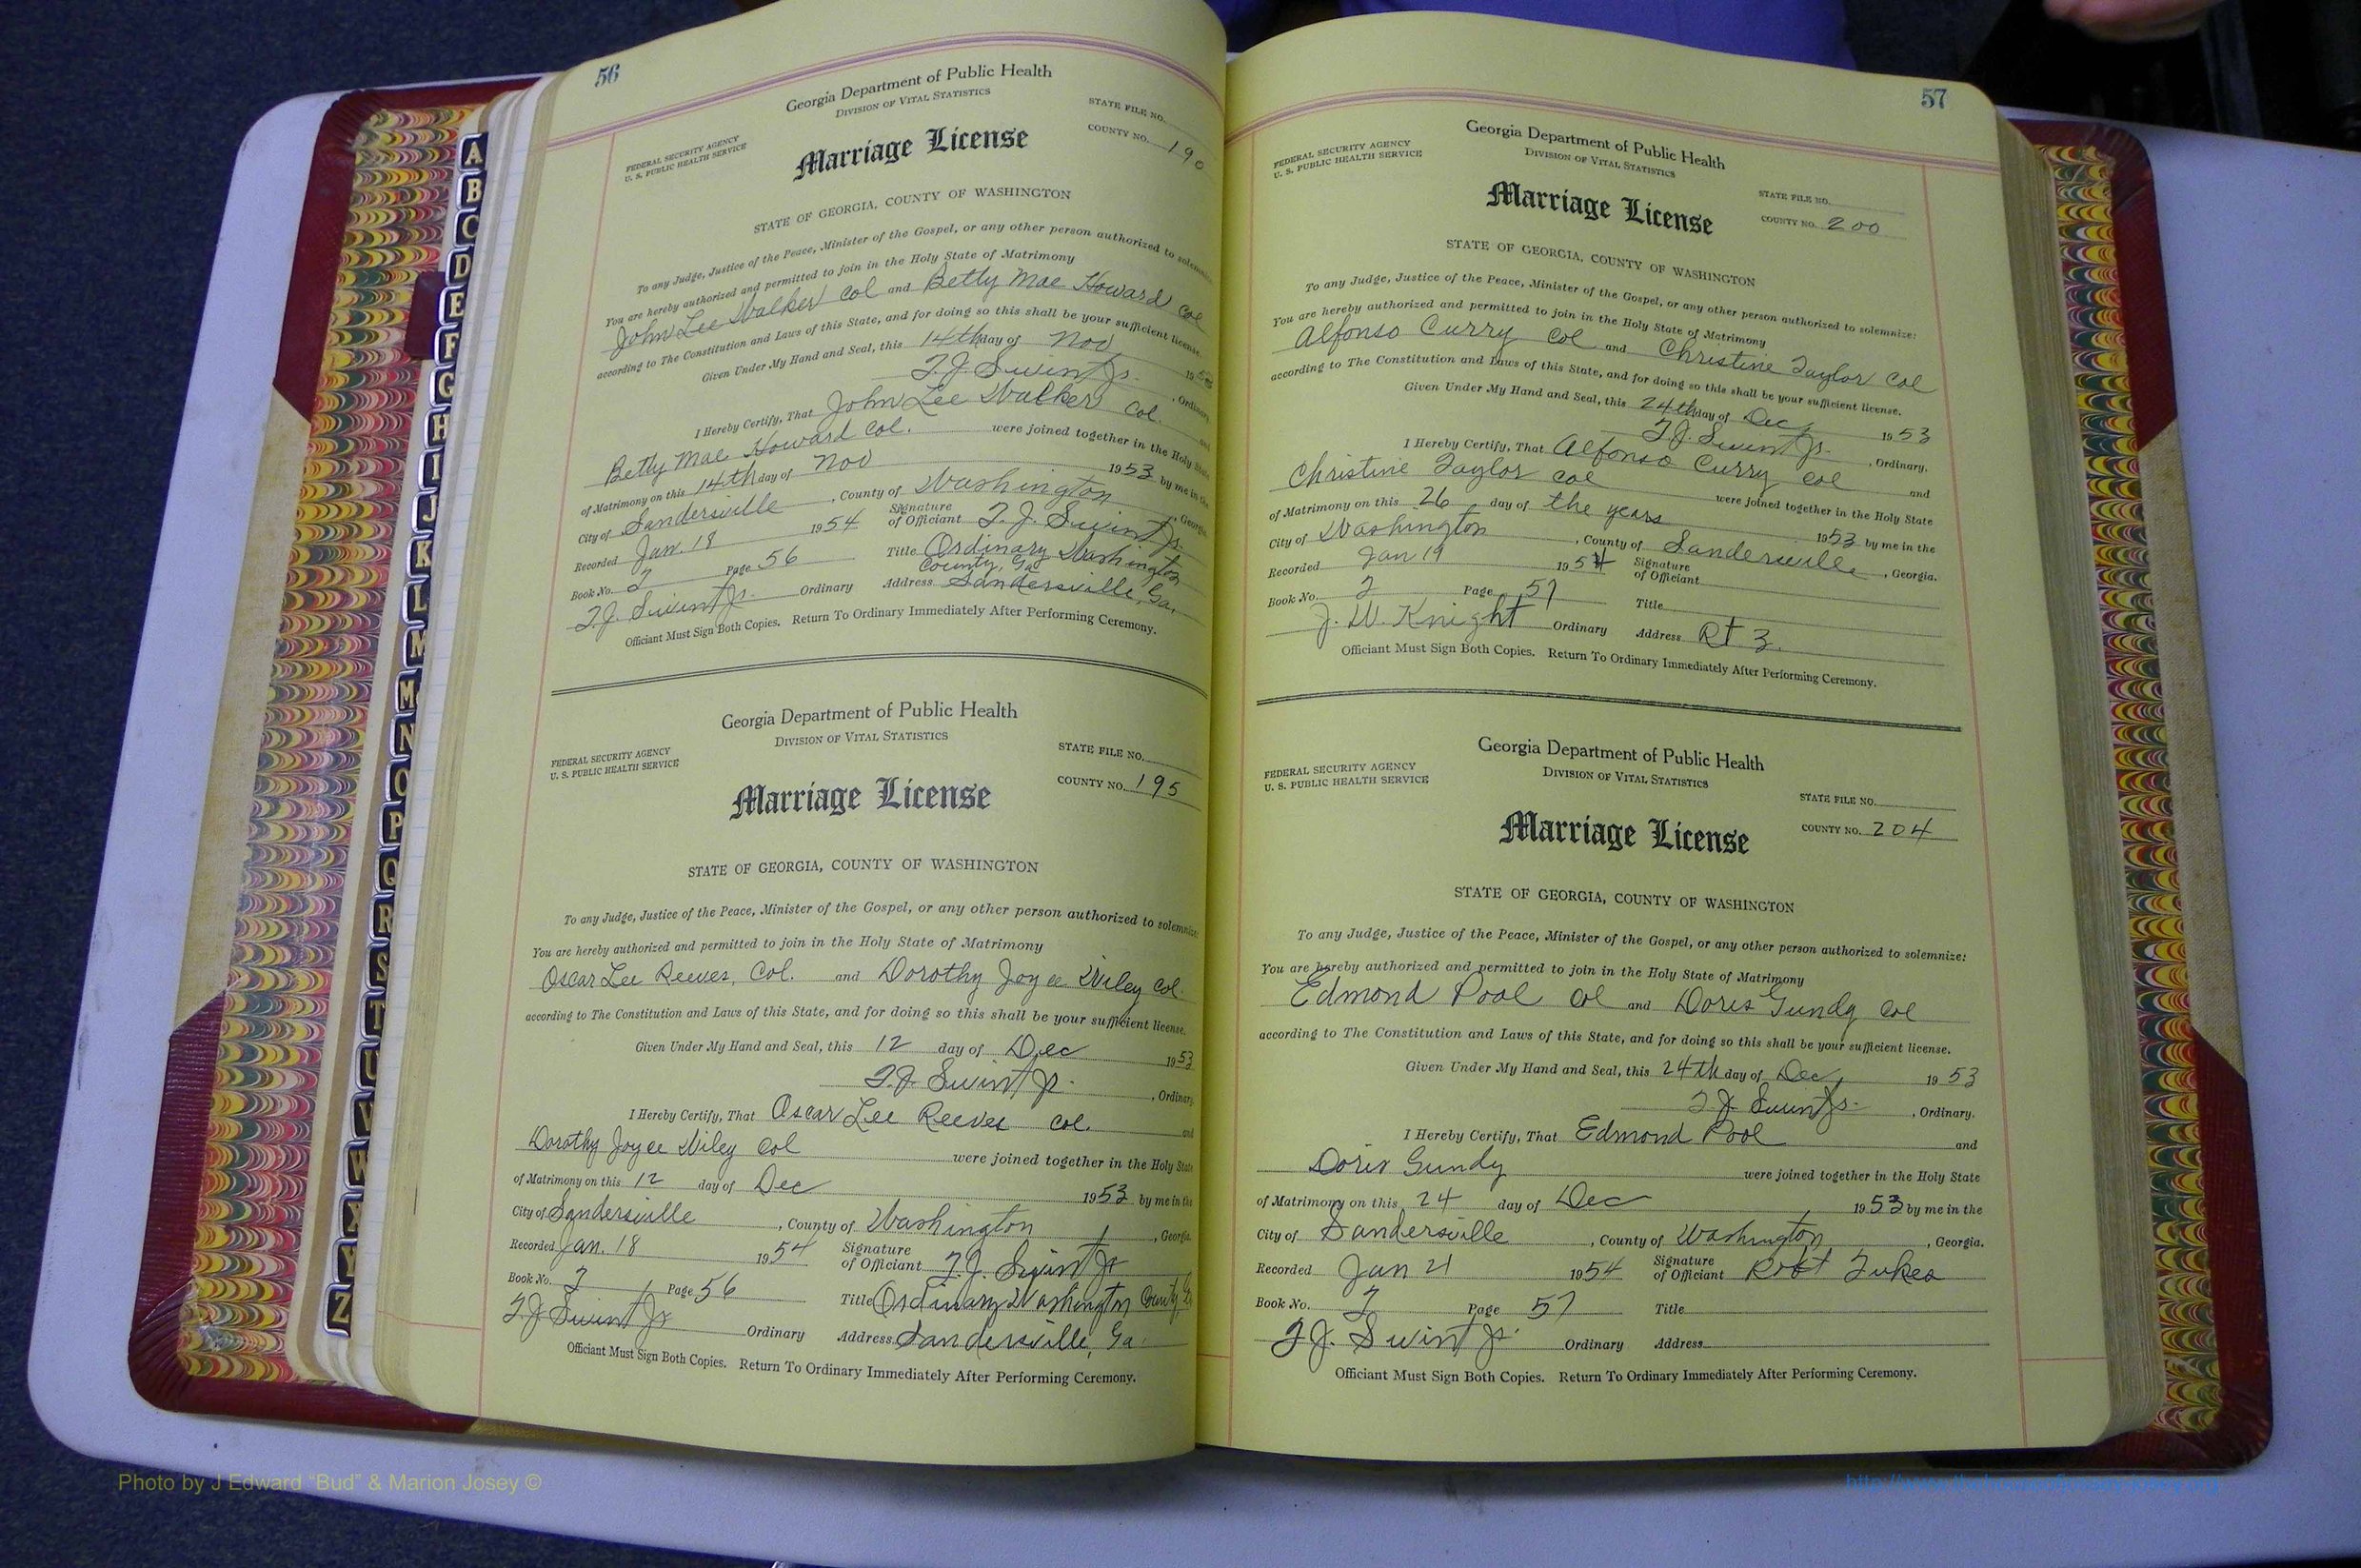 56
Georgia Department of Public Health
DIVISION OF VITAL STATISTICS
FEDERAL SECURITY AGENCY
U. S. PUBLIC HEALTH SERVICE
STATE FILE NO.
COUNTY NO. 190
Marriage License
STATE OF GEORGIA, COUNTY OF WASHINGTON
To any Judge, Justice of the Peace, Minister of the Gospel, or any other person authorized to solemnize:
You are hereby authorized and permitted to join in the Holy State of Matrimony
John Lee Walker Col and Betty Mae Howard Col
according to The Constitution and Laws of this State, and for doing so this shall be your sufficient license.
Given Under My Hand and Seal, this 14th day of Nov 1953
T.J. Swint Jr. , Ordinary
I Hereby Certify, That John Lee Walker Col. and
Betty Mae Howard Col. were joined together in the Holy State
of Matrimony on this 14th day of Nov 1953 by me in the
City of Sandersville , County of Washington , Georgia
Recorded Jan. 18 1954 Signature of Officiant T.J. Swint Jr.
Book No. 2 Page 56 Title Ordinary Washington County, Ga
T.J. Swint Jr. Ordinary Address Sandersville, Ga.
Officiant Must Sign Both Copies. Return To Ordinary Immediately After Performing Ceremony.
Georgia Department of Public Health
DIVISION OF VITAL STATISTICS
FEDERAL SECURITY AGENCY
U. S. PUBLIC HEALTH SERVICE
STATE FILE NO.
COUNTY NO. 195
Marriage License
STATE OF GEORGIA, COUNTY OF WASHINGTON
To any Judge, Justice of the Peace, Minister of the Gospel, or any other person authorized to solemnize:
You are hereby authorized and permitted to join in the Holy State of Matrimony
Oscar Lee Reeves, Col. and Dorothy Joyce Wiley Col.
according to The Constitution and Laws of this State, and for doing so this shall be your sufficient license.
Given Under My Hand and Seal, this 12 day of Dec 1953
T.J. Swint Jr. , Ordinary
I Hereby Certify, That Oscar Lee Reeves Col. and
Dorothy Joyce Wiley Col were joined together in the Holy State
of Matrimony on this 12 day of Dec 1953 by me in the
City of Sandersville , County of Washington , Georgia.
Recorded Jan. 18 1954 Signature of Officiant T.J. Swint Jr
Book No. 2 Page 56 Title Ordinary Washington County, Ga
T J Swint Jr Ordinary Address Sandersville, Ga.
Officiant Must Sign Both Copies. Return To Ordinary Immediately After Performing Ceremony.
57
Georgia Department of Public Health
DIVISION OF VITAL STATISTICS
FEDERAL SECURITY AGENCY
U. S. PUBLIC HEALTH SERVICE
STATE FILE NO.
COUNTY NO. 200
Marriage License
STATE OF GEORGIA, COUNTY OF WASHINGTON
To any Judge, Justice of the Peace, Minister of the Gospel, or any other person authorized to solemnize:
You are hereby authorized and permitted to join in the Holy State of Matrimony
Alfonso Curry Col and Christine Taylor Col
according to The Constitution and Laws of this State, and for doing so this shall be your sufficient license.
Given Under My Hand and Seal, this 24th day of Dec, 1953
T.J. Swint Jr. , Ordinary.
I Hereby Certify, That Alfonso Curry Col and
Christine Taylor Col were joined together in the Holy State
of Matrimony on this 26 day of the years 1953 by me in the
City of Washington , County of Sandersville , Georgia.
Recorded Jan 19 1954 Signature of Officiant
Book No. 2 Page 57 Title
J. W. Knight Ordinary Address Rt 3.
Officiant Must Sign Both Copies. Return To Ordinary Immediately After Performing Ceremony.
Georgia Department of Public Health
DIVISION OF VITAL STATISTICS
FEDERAL SECURITY AGENCY
U. S. PUBLIC HEALTH SERVICE
STATE FILE NO.
COUNTY NO. 204
Marriage License
STATE OF GEORGIA, COUNTY OF WASHINGTON
To any Judge, Justice of the Peace, Minister of the Gospel, or any other person authorized to solemnize:
You are hereby authorized and permitted to join in the Holy State of Matrimony
Edmond Pool Col and Doris Gundy Col
according to The Constitution and Laws of this State, and for doing so this shall be your sufficient license.
Given Under My Hand and Seal, this 24th day of Dec, 1953
T J. Swint Jr. , Ordinary.
I Hereby Certify, That Edmond Pool and
Doris Gundy were joined together in the Holy State
of Matrimony on this 24 day of Dec 1953 by me in the
City of Sandersville , County of Washington , Georgia.
Recorded Jan 21 1954 Signature of Officiant Robt Tukes
Book No. 2 Page 57 Title
T J. Swint Jr. Ordinary Address
Officiant Must Sign Both Copies. Return To Ordinary Immediately After Performing Ceremony.
A
B
C
D
E
F
G
H
I
J
K
L
M
M
N
O
P
Q
R
S
T
U
V
W
X
Y
Z
Photo by J Edward “Bud” & Marion Josey ©